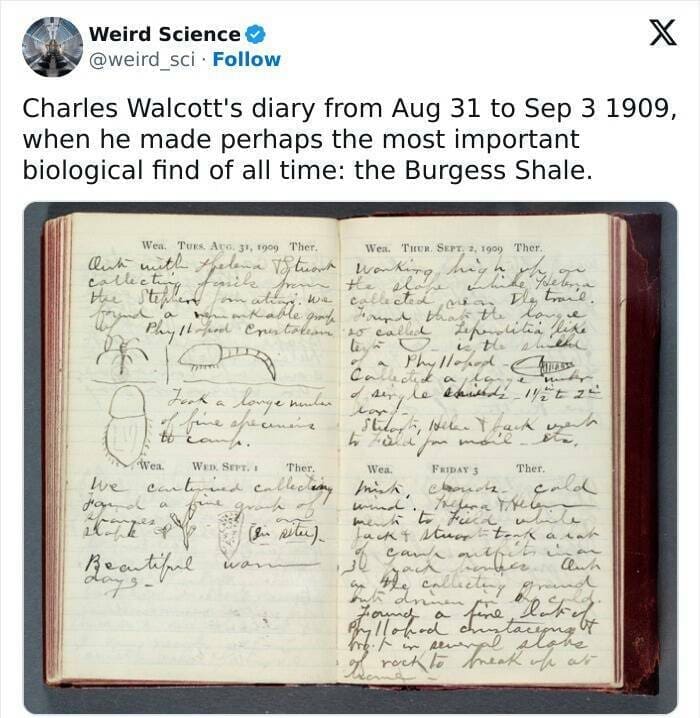 Weird Science
@weird_sci · Follow
X
Charles Walcott's diary from Aug 31 to Sep 3 1909,
when he made perhaps the most important
biological find of all time: the Burgess Shale.
Wea. TUES. AUG. 31, 1909 Ther.
Out with Helena & Stuart
collecting fossils from
the Stephen formation. We
found a remarkable group
of Phyllopod Crustaceans
Took a large number
of fine specimens
to camp.
Wea. WED. SEPT. 1 Ther.
We continued collecting
Found a fine group of
sponges on
slope (in situ).
Beautiful warm
days -
Wea. THUR. SEPT. 2, 1909 Ther.
Working high up on
the slope while Helena
collected near the trail.
Found that the large
so called Leperditia like
test is the shield
of a Phyllopod -
Collected a large number
of single shields - 1½ to 2
long.
Stuart, Helen & Jack went
to Field for mail - etc.
Wea. FRIDAY 3 Ther.
clouds - cold
wind. Helena & Helen
went to Field while
Jack & Stuart took a lot
of camp outfits in on
3 pack horses Out
on the collecting ground
but driven in by cold
Found a fine lot of
Phyllopod crustaceans &
bro't in several slabs
of rock to break up at
home -